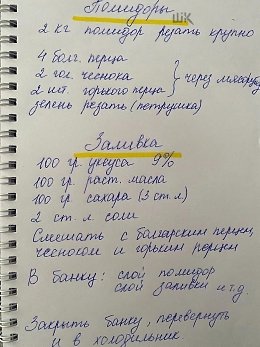 Помидоры
ШК
2 кг помидор резать крупно
4 болг. перца
2 гол. чеснока
2 шт. горького перца } через мясорубку
зелень резать (петрушка)
Заливка
100 гр уксуса 9%
100 гр раст. масла
100 гр сахара (3 ст. л)
2 ст. л соли
Смешать с болгарским перцем,
чесноком и горьким перцем
В банку: слой помидор
слой заливки и т.д.
Закрыть банку, перевернуть
и в холодильник